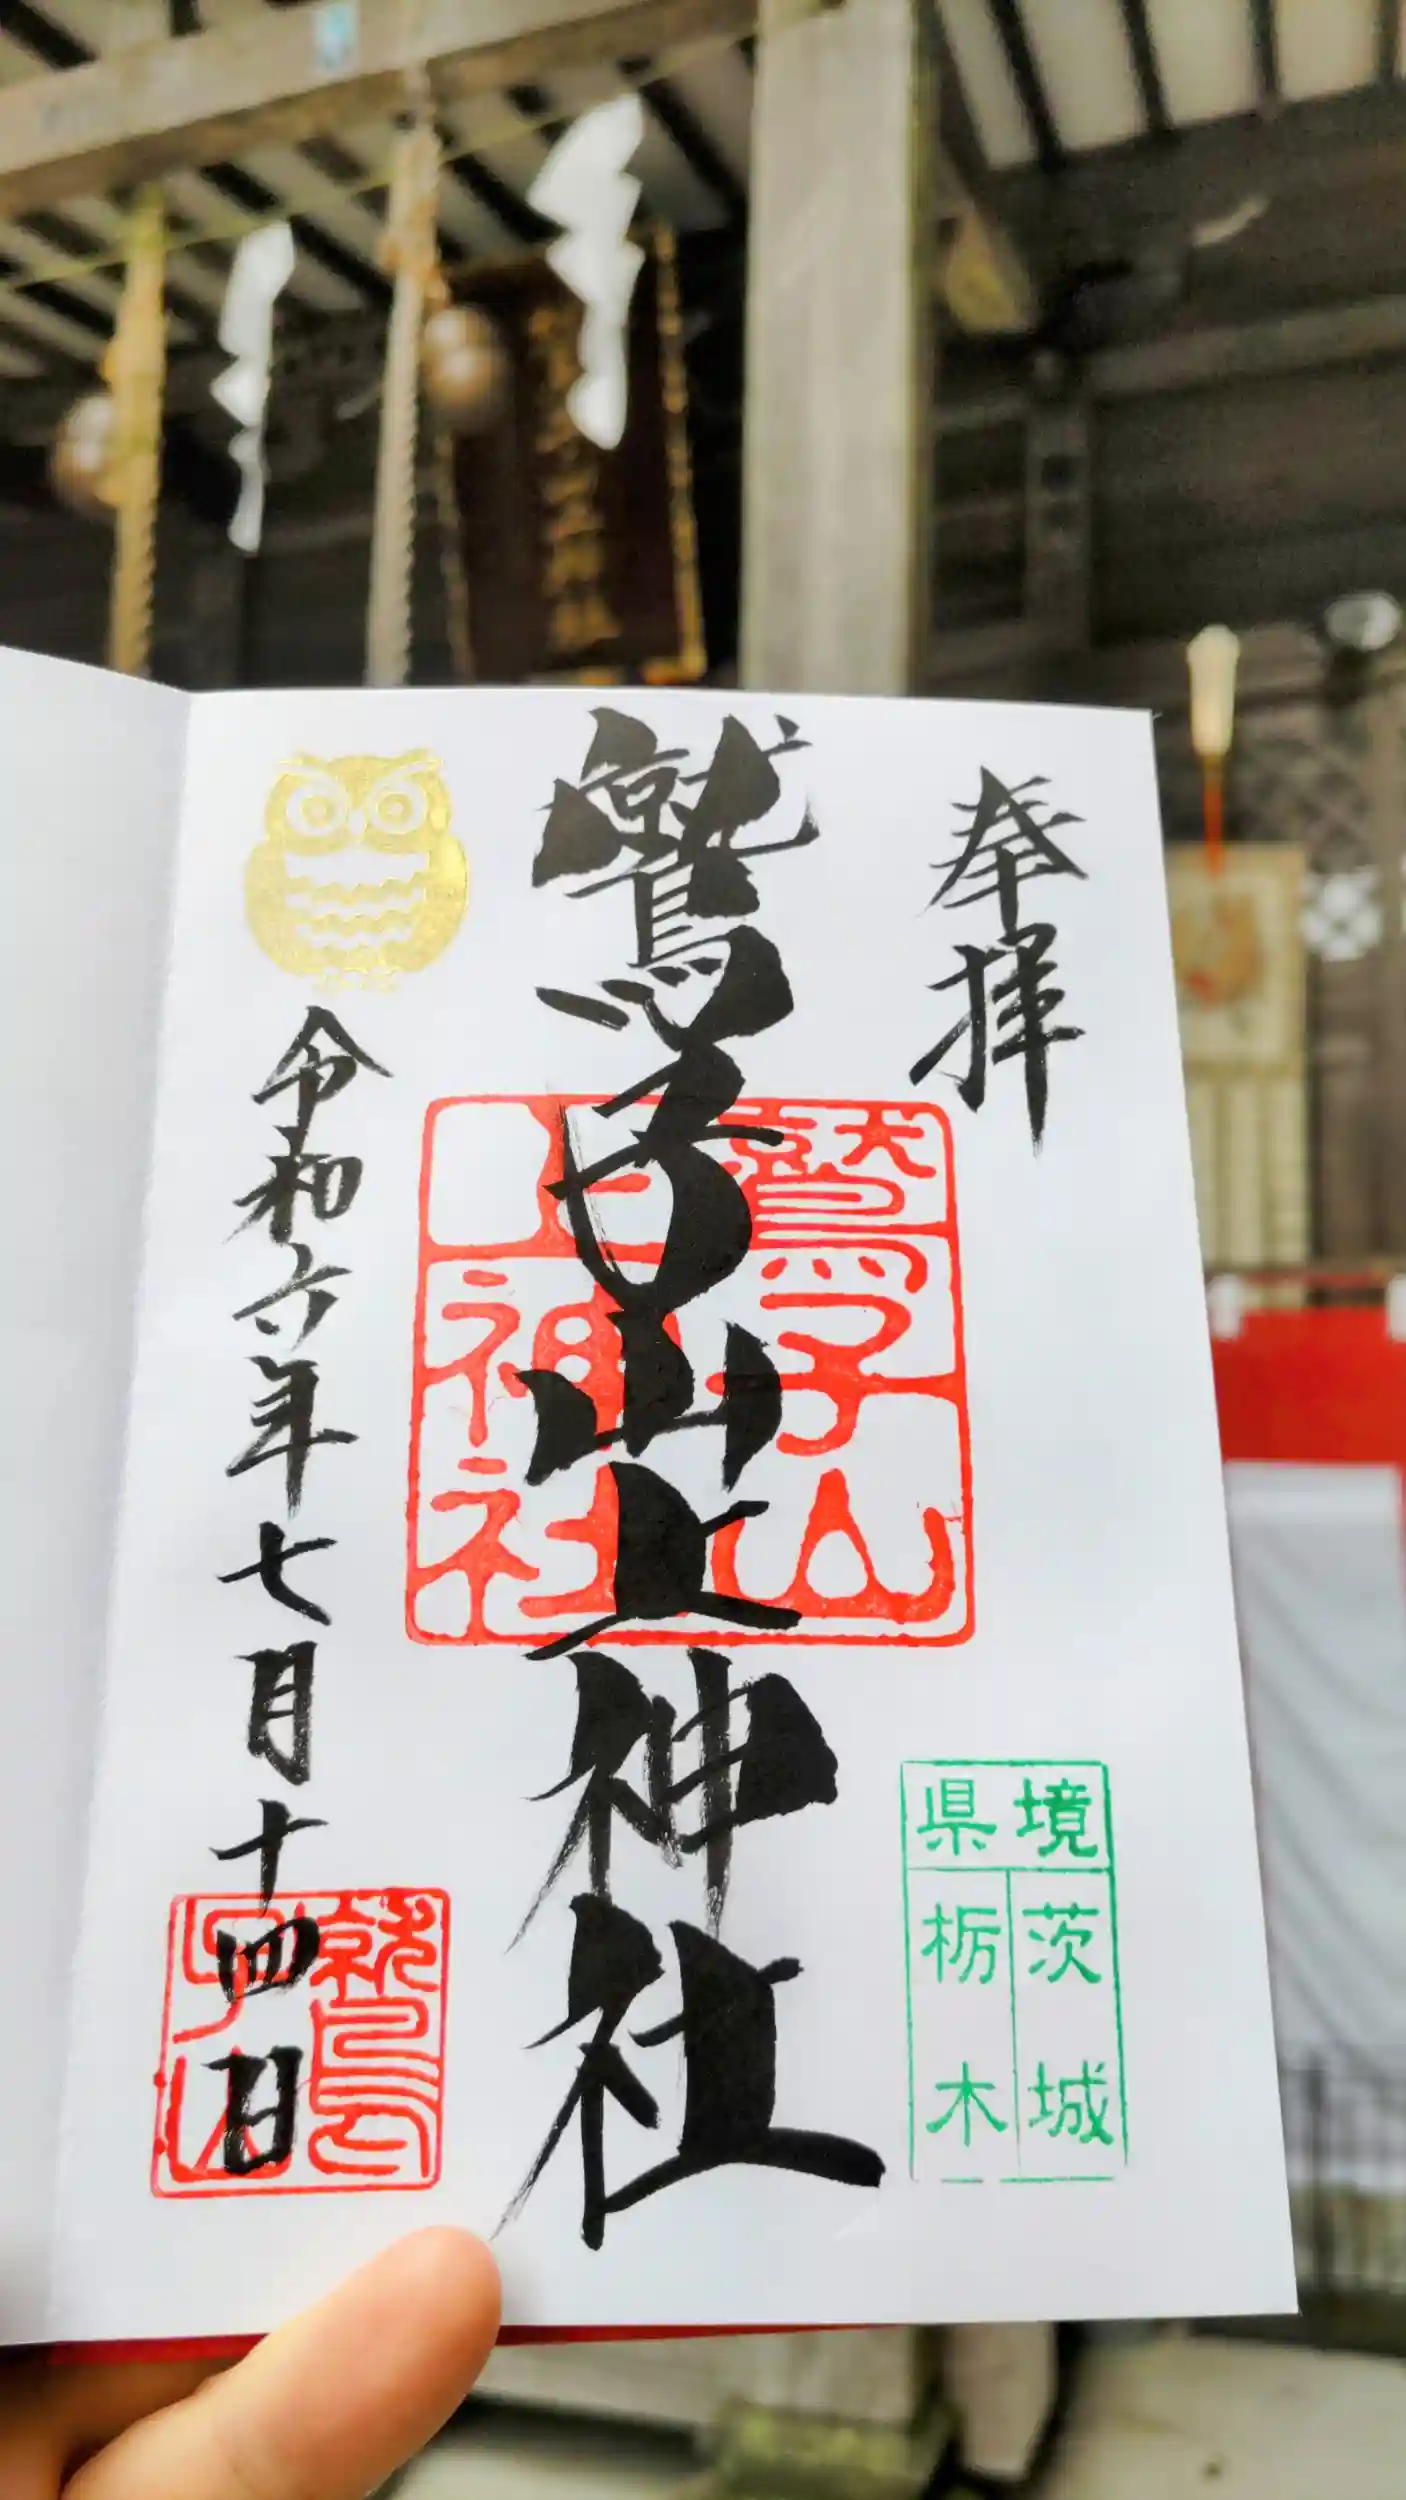 奉拝
境県
茨城
栃木
鷲子山上神社
鷲子山
上神社
令和六年七月十四日
鷲
子山